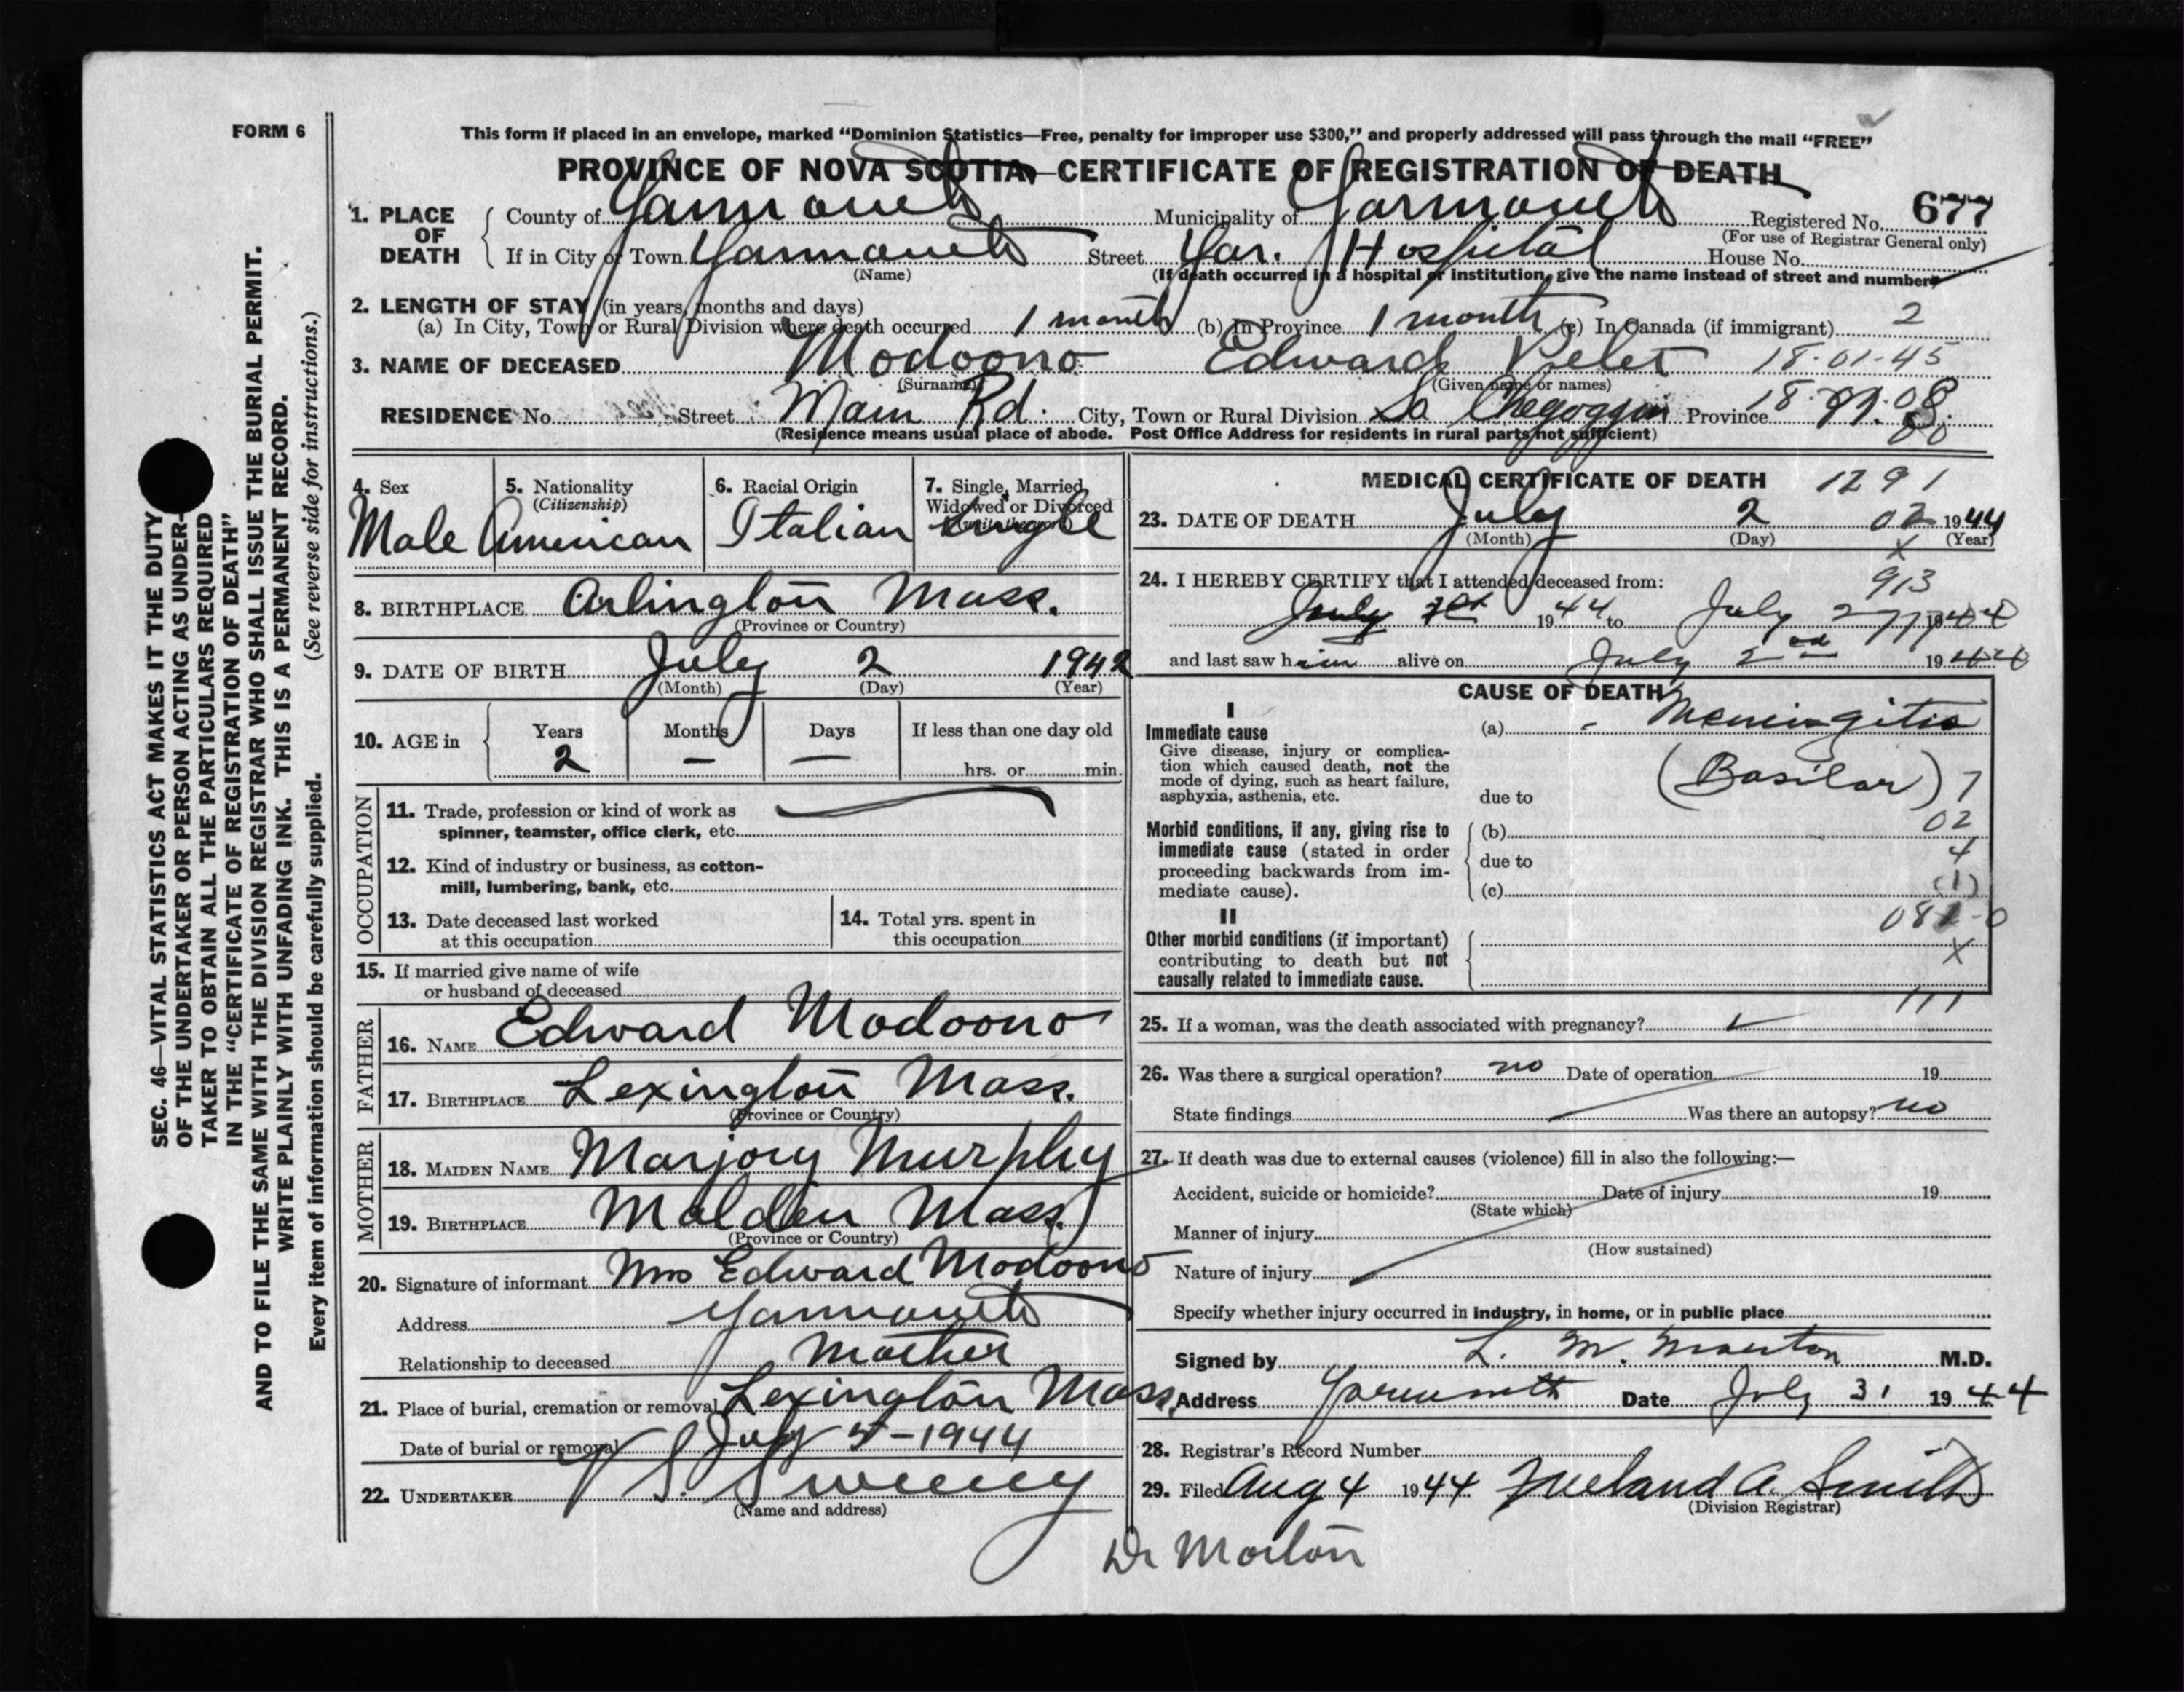 FORM 6
This form if placed in an envelope, marked “Dominion Statistics—Free, penalty for improper use $300,” and properly addressed will pass through the mail “FREE”
PROVINCE OF NOVA SCOTIA—CERTIFICATE OF REGISTRATION OF DEATH
1. PLACE OF DEATH County of Yarmouth Municipality of Yarmouth Registered No. 677
(For use of Registrar General only)
If in City or Town Yarmouth Street Yar. Hospital House No.
(Name) (If death occurred in a hospital or institution, give the name instead of street and number)
2. LENGTH OF STAY (in years, months and days)
(a) In City, Town or Rural Division where death occurred 1 month (b) In Province 1 month (c) In Canada (if immigrant) 2
3. NAME OF DECEASED Modoono Edward Peter 18-01-45
(Surname) (Given name or names)
RESIDENCE No. Street Main Rd. City, Town or Rural Division So Chegoggin Province 18.99.08
00
(Residence means usual place of abode. Post Office Address for residents in rural parts not sufficient)
4. Sex 5. Nationality 6. Racial Origin 7. Single, Married,
(Citizenship) Widowed or Divorced
(write the word)
Male American Italian Single
8. BIRTHPLACE Arlington Mass.
(Province or Country)
9. DATE OF BIRTH July 2 1942
(Month) (Day) (Year)
10. AGE in Years Months Days If less than one day old
2 — — hrs. or min.
OCCUPATION
11. Trade, profession or kind of work as
spinner, teamster, office clerk, etc.
12. Kind of industry or business, as cotton-
mill, lumbering, bank, etc.
13. Date deceased last worked
at this occupation
14. Total yrs. spent in
this occupation
15. If married give name of wife
or husband of deceased
FATHER
16. NAME Edward Modoono
17. BIRTHPLACE Lexington Mass.
(Province or Country)
MOTHER
18. MAIDEN NAME Marjory Murphy
19. BIRTHPLACE Malden Mass.
(Province or Country)
20. Signature of informant Mrs Edward Modoono
Address Yarmouth
Relationship to deceased Mother
21. Place of burial, cremation or removal Lexington Mass.
Date of burial or removal July 5-1944
22. UNDERTAKER V S. Sweeny
(Name and address)
MEDICAL CERTIFICATE OF DEATH 1291
23. DATE OF DEATH July 2 02 1944
(Month) (Day) (Year)
X
24. I HEREBY CERTIFY that I attended deceased from: 913
July 1st 1944 to July 2 1944
and last saw him alive on July 2nd 1944
CAUSE OF DEATH
I
Immediate cause (a) Meningitis
Give disease, injury or complica-
tion which caused death, not the
mode of dying, such as heart failure,
asphyxia, asthenia, etc.
due to (Basilar) 7
Morbid conditions, if any, giving rise to
immediate cause (stated in order
proceeding backwards from im-
mediate cause).
(b) 02
due to 4
(c) (1)
II 081-0
Other morbid conditions (if important)
contributing to death but not
causally related to immediate cause.
X
111
25. If a woman, was the death associated with pregnancy?
26. Was there a surgical operation? no Date of operation 19
State findings Was there an autopsy? no
27. If death was due to external causes (violence) fill in also the following:—
Accident, suicide or homicide? Date of injury 19
(State which)
Manner of injury
(How sustained)
Nature of injury
Specify whether injury occurred in industry, in home, or in public place
Signed by L. M. Morton M.D.
Address Yarmouth Date July 31 1944
28. Registrar's Record Number
29. Filed Aug 4 1944 A. Smith
(Division Registrar)
Dr Morton
SEC. 46—VITAL STATISTICS ACT MAKES IT THE DUTY
OF THE UNDERTAKER OR PERSON ACTING AS UNDER-
TAKER TO OBTAIN ALL THE PARTICULARS REQUIRED
IN THE “CERTIFICATE OF REGISTRATION OF DEATH”
AND TO FILE THE SAME WITH THE DIVISION REGISTRAR WHO SHALL ISSUE THE BURIAL PERMIT.
WRITE PLAINLY WITH UNFADING INK. THIS IS A PERMANENT RECORD.
Every item of information should be carefully supplied. (See reverse side for instructions.)